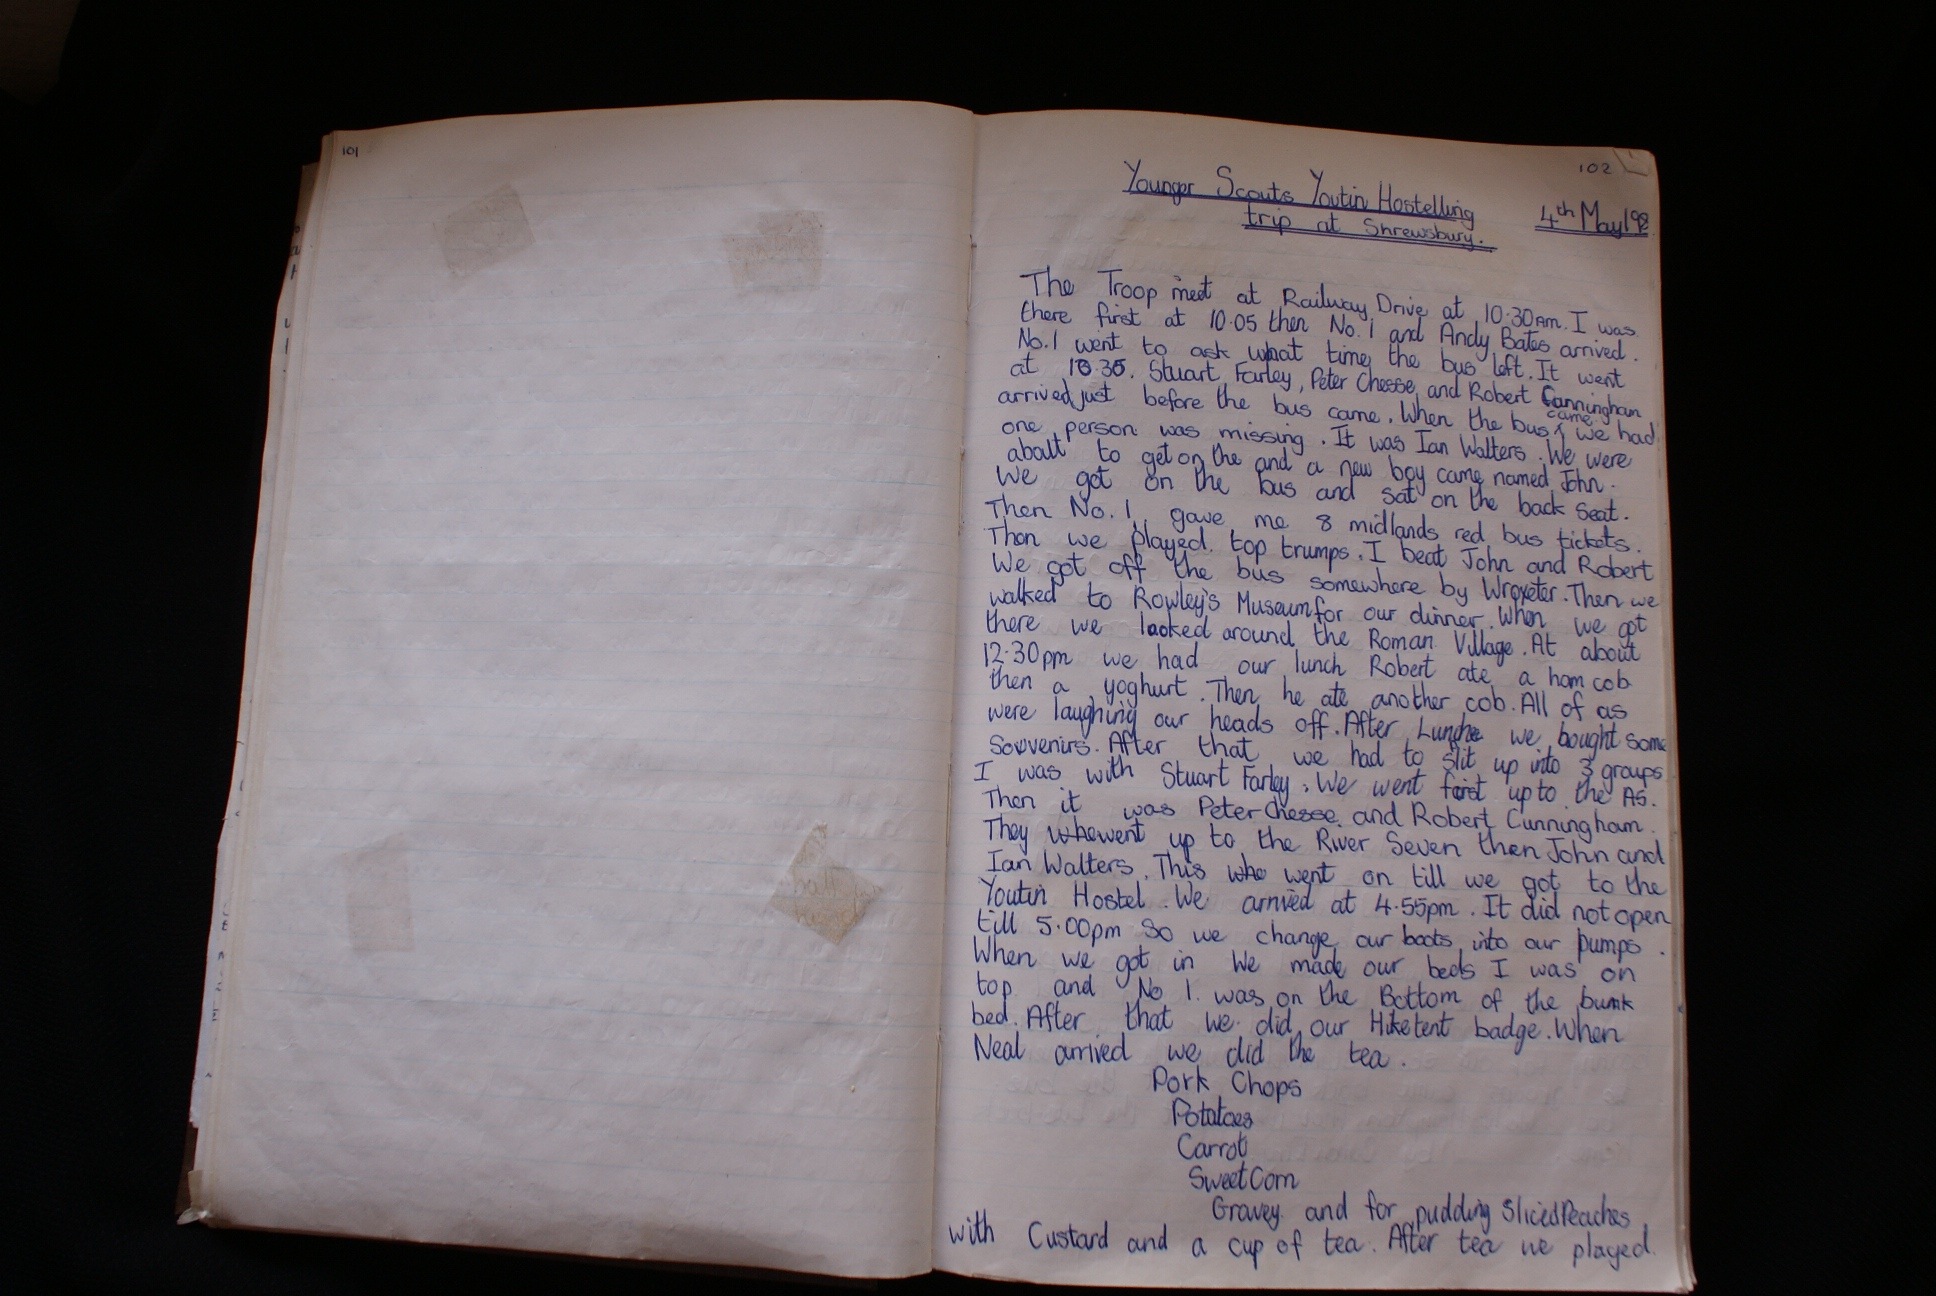 101
102
Younger Scouts Youtin Hostelling
trip at Shrewsbury.
4th May 198
The Troop meet at Railway Drive at 10.30am. I was
there first at 10.05 then No. 1 and Andy Bates arrived.
No. 1 went to ask what time the bus left. It went
at 10.35. Stuart Farley, Peter Cheese, and Robert Cunningham
arrived just before the bus came. When the bus came we had
one person was missing. It was Ian Walters. We were
about to get on the and a new boy came named John.
We got on the bus and sat on the back seat.
Then No. 1 gave me 8 midlands red bus tickets.
Then we played top trumps. I beat John and Robert
We got off the bus somewhere by Wroxeter. Then we
walked to Rowley's Museum for our dinner. When we got
there we looked around the Roman Village. At about
12.30pm we had our lunch Robert ate a ham cob
then a yoghurt. Then he ate another cob. All of as
were laughing our heads off. After Lunche we bought some
Souvenirs. After that we had to slit up into 3 groups
I was with Stuart Farley. We went first up to the A5.
Then it was Peter Cheese and Robert Cunningham.
They whe went up to the River Seven then John and
Ian Walters. This who went on till we got to the
Youtin Hostel. We arrived at 4.55pm. It did not open
till 5.00pm So we change our boots into our pumps.
When we got in We made our beds I was on
top and No 1. was on the Bottom of the bunk
bed. After that we did our Hike tent badge. When
Neal arrived we did the tea.
Pork Chops
Potatoes
Carrot
SweetCorn
Gravey and for pudding Sliced Peaches
with Custard and a cup of tea. After tea we played